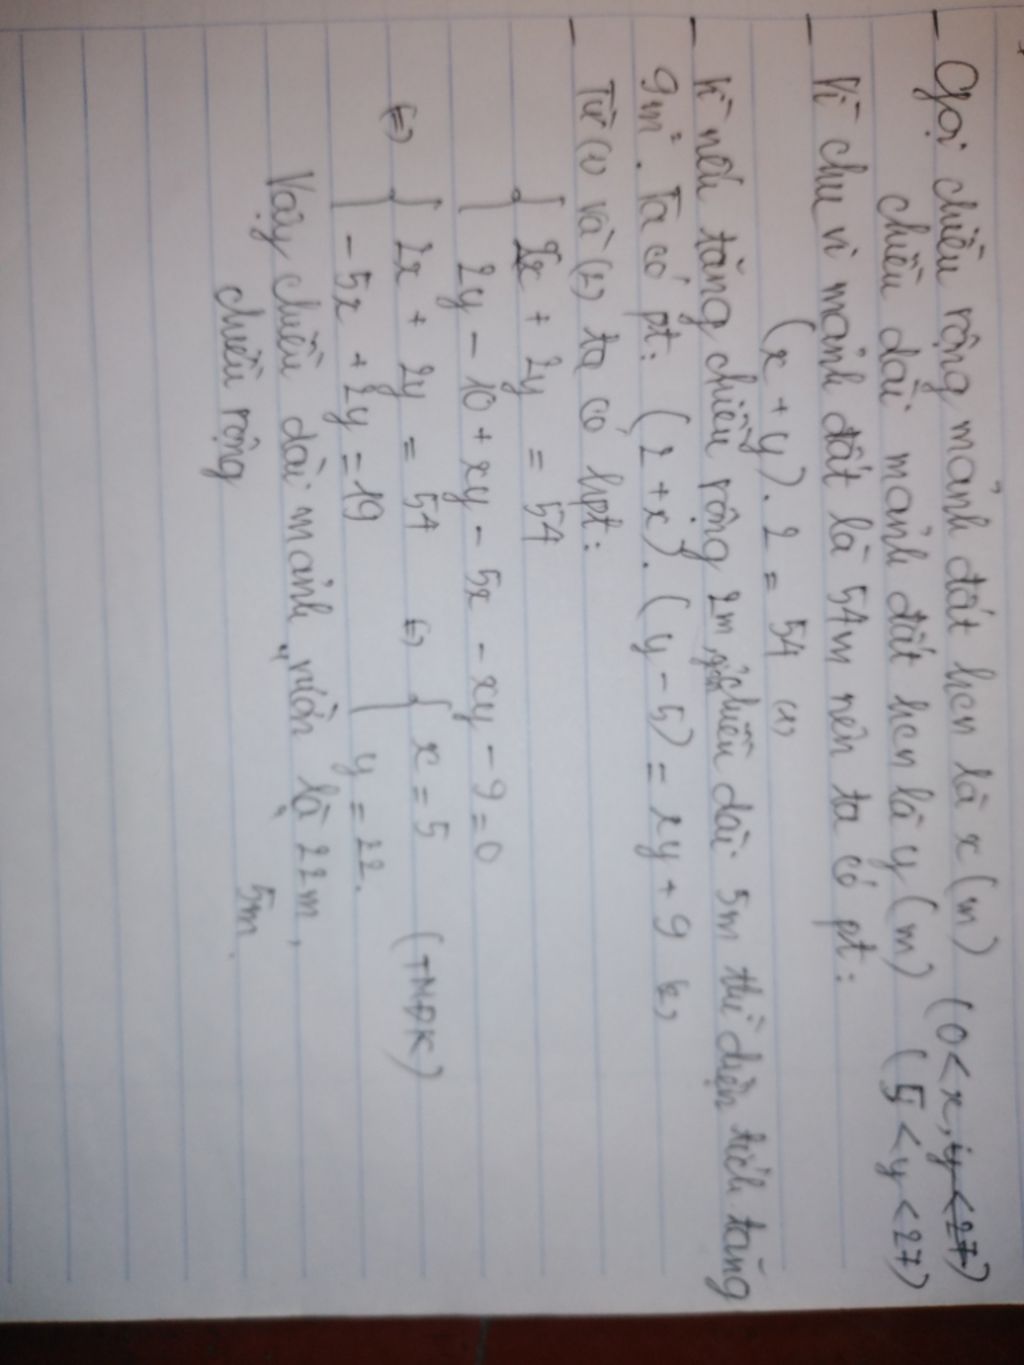 - Gọi chiều rộng mảnh đất hcn là x (m) (0 < x, y < 27)
chiều dài mảnh đất hcn là y (m) (5 < y < 27)
- Vì chu vi mảnh đất là 54m nên ta có pt:
(x + y). 2 = 54 (1)
- Vì nếu tăng chiều rộng 2m, giảm chiều dài 5m thì diện tích tăng
9m². Ta có pt: (2 + x). (y - 5) = xy + 9 (2)
- Từ (1) và (2) ta có hpt:
{ 2x + 2y = 54
2y - 10 + xy - 5x - xy - 9 = 0
(=) { 2x + 2y = 54 (=) { x = 5 (TMĐK)
- 5x + 2y = 19 y = 22.
Vậy chiều dài mảnh vườn là 22m,
chiều rộng " " 5m.